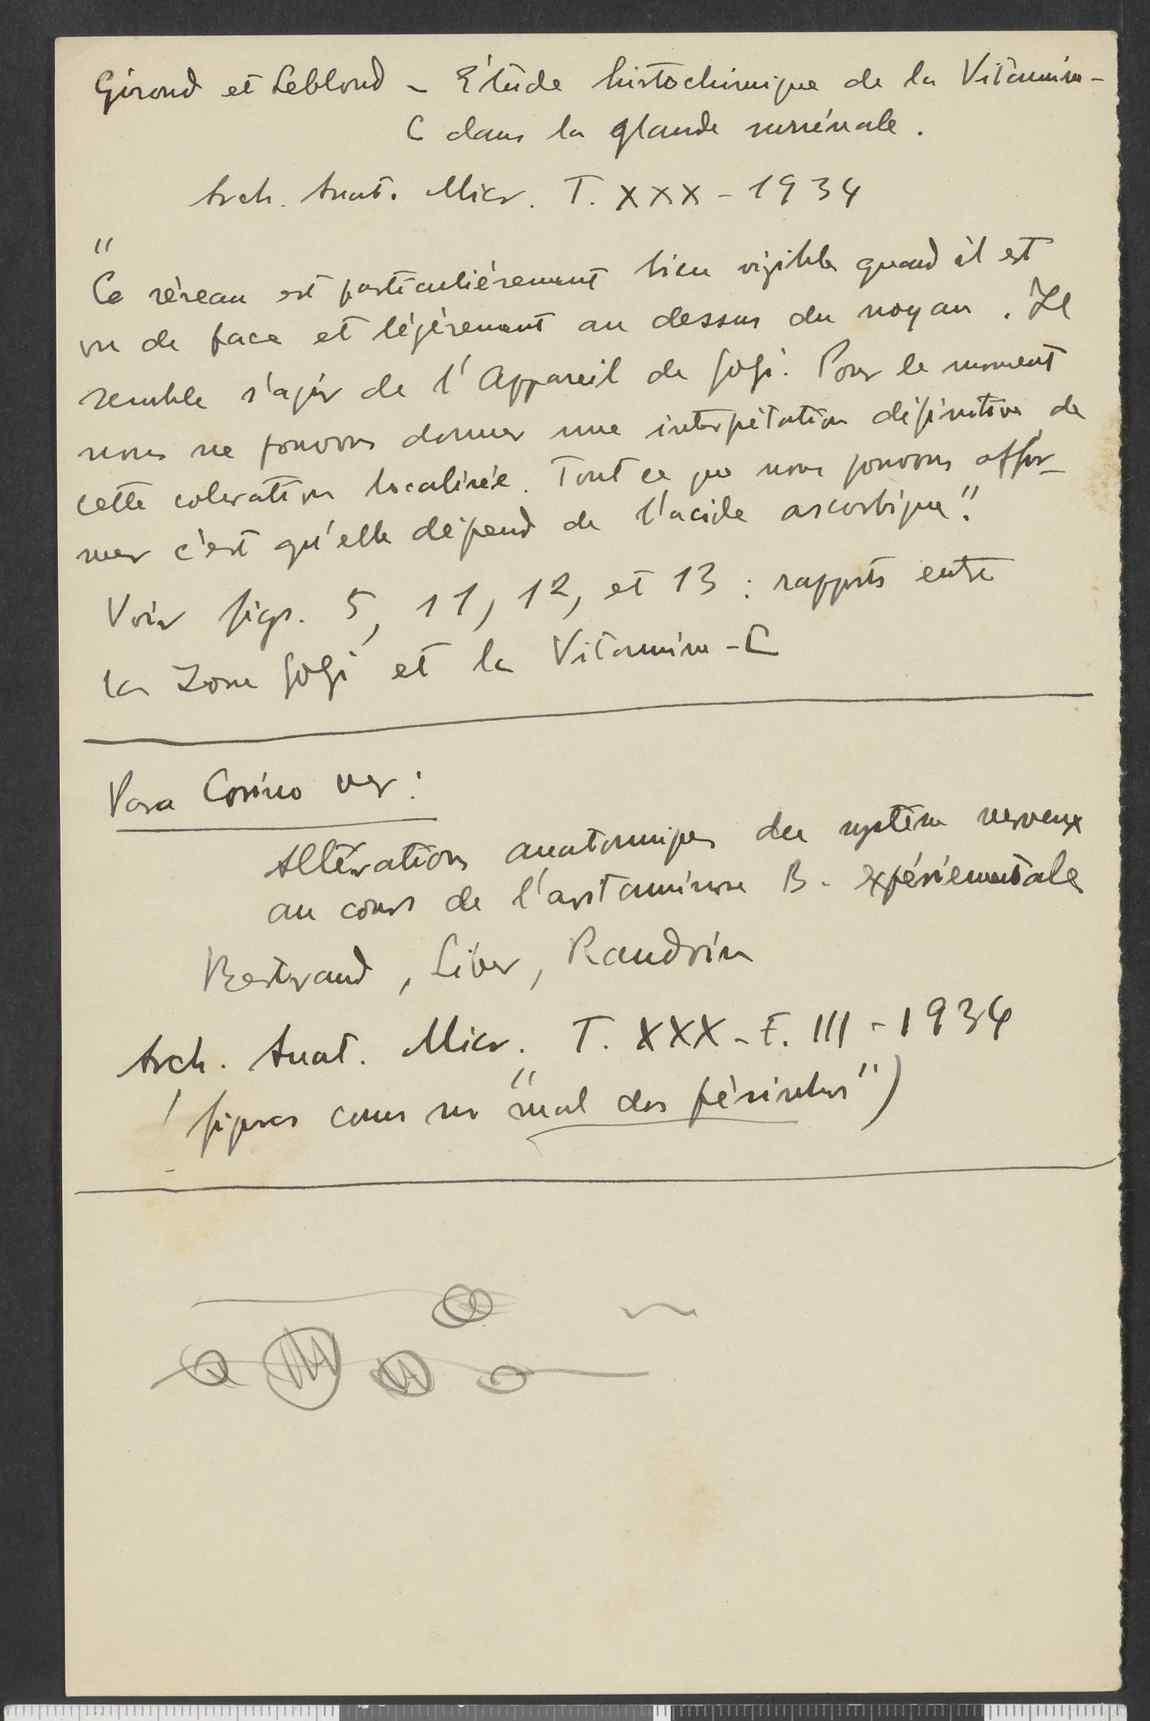 Giroud et Leblond - Étude histochimique de la Vitamin-
C dans la glande surrénale.
Arch. Anat. Micr. T. XXX - 1934
"
Ce réseau est particuliérement bien visible quand il est
vu de face et légérement au dessus du noyau. Il
semble s'agir de l'Appareil de Golgi. Pour le moment
nous ne pouvons donner une interpétation définitive de
cette coloration localisée. Tout ce que nous pouvons affir-
mer c'est qu'elle dépend de l'acide ascorbique".
Voir figs. 5, 11, 12, et 13: rapports entre
la Zone Golgi et la Vitamin-C
Para Corino ver:
Altérations anatomiques du système nerveux
au cours de l'avitaminose B. expériementale
Bertrand, Liber, Randoin
Arch. Anat. Micr. T. XXX - F. III - 1934
(figuras como no "mal das pésinhos")